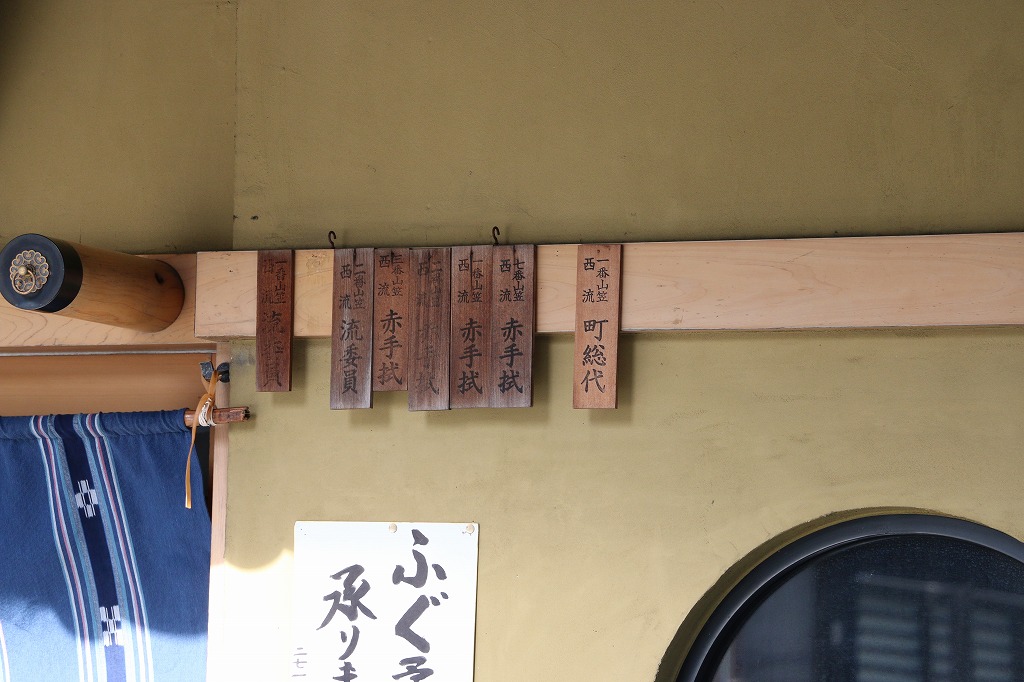 一番山笠
西流
町総代
七番山笠
西流
赤手拭
一番山笠
西流
赤手拭
西流
手拭
三番山笠
西流
赤手拭
二番山笠
西流
流委員
番山笠
流
流委員
ふぐ
承りま
二七一